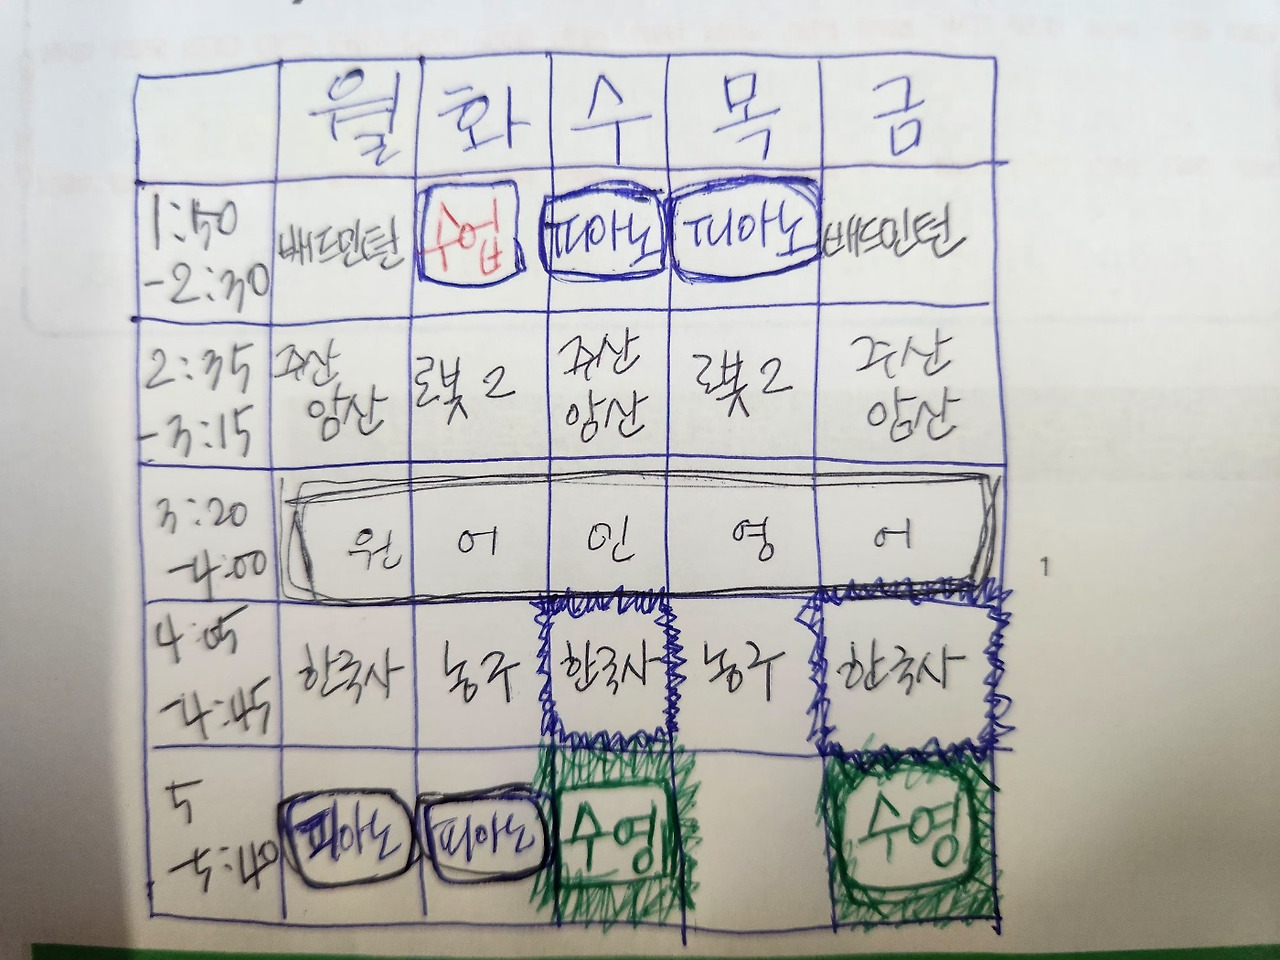 월 화 수 목 금
1:50 배드민턴 수업 피아노 피아노 배드민턴
-2:30
2:35 주산 로봇2 주산 로봇2 주산
-3:15 암산 암산 암산
3:20
-4:00 원 어 인 영 어
4:05
-4:45 한국사 농구 한국사 농구 한국사
5
-5:40 피아노 피아노 수영 수영
1